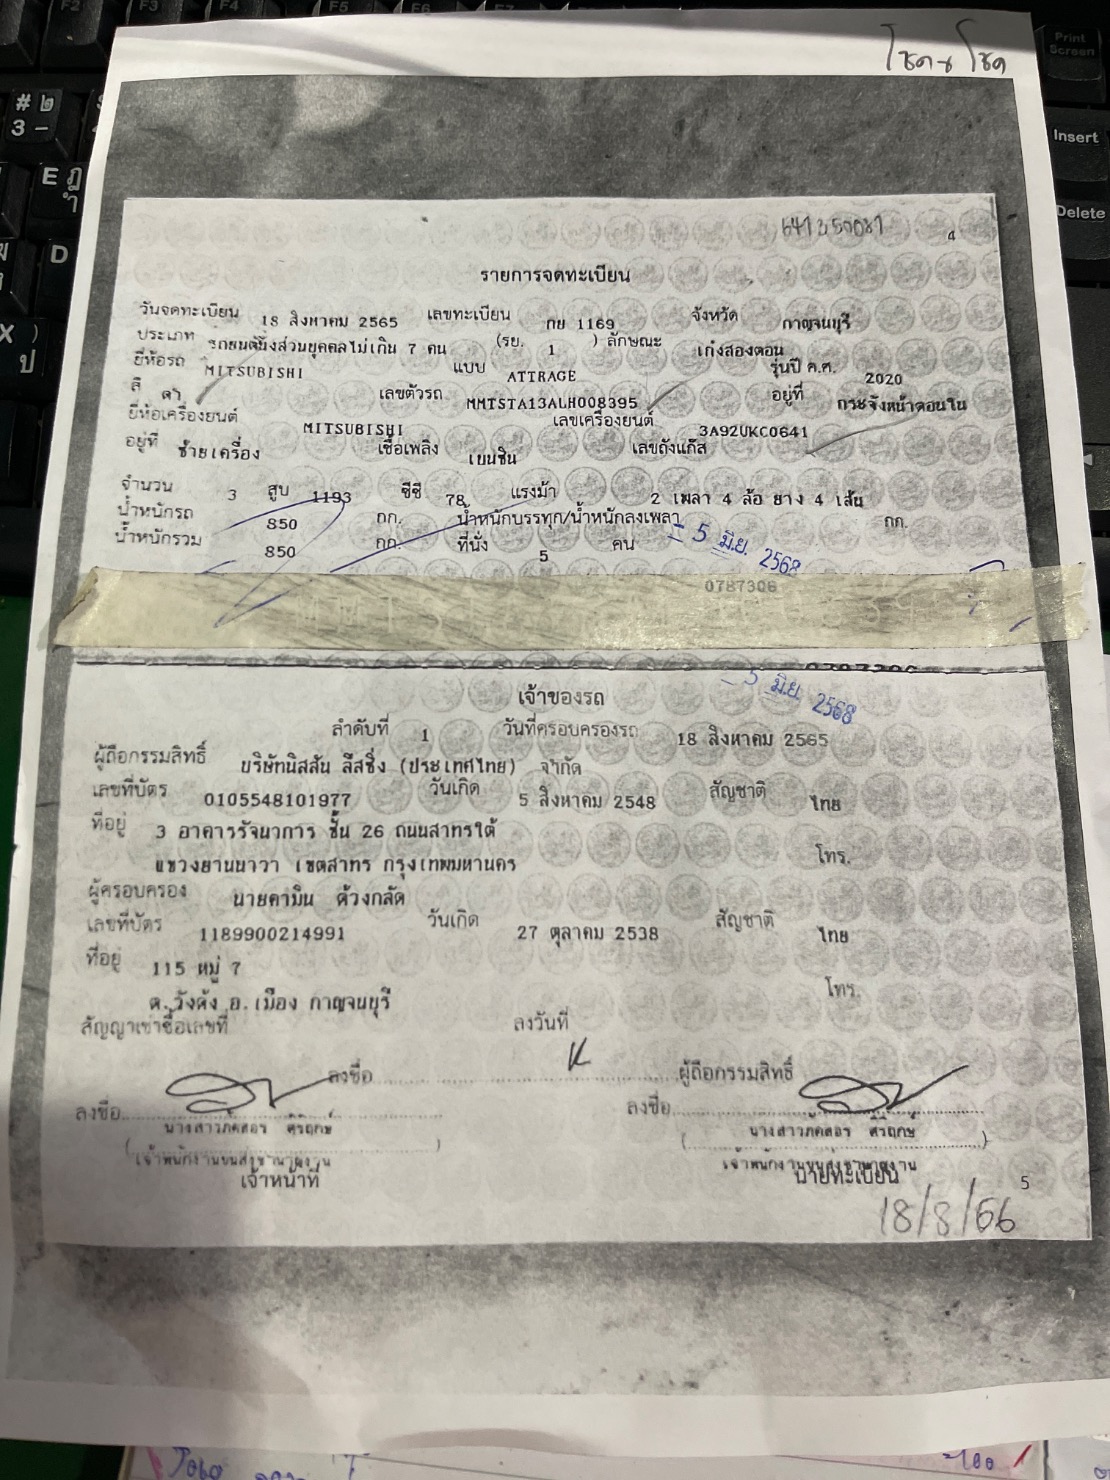 F2 F3 F4 F5 F6 F7
Print Screen
# ๒
3 -
Insert
Delete
E ฎ ำ
D
X )
ป
โชค ๆ โชค
4
รายการจดทะเบียน
วันจดทะเบียน 18 สิงหาคม 2565 เลขทะเบียน กย 1169 จังหวัด กาญจนบุรี
ประเภท รถยนต์นั่งส่วนบุคคลไม่เกิน 7 คน (รย. 1 ) ลักษณะ เก๋งสองตอน
ยี่ห้อรถ MITSUBISHI แบบ ATTRAGE รุ่นปี ค.ศ. 2020
สี ดำ เลขตัวรถ MMTSTA13ALH008395 อยู่ที่ กระจังหน้าตอนใน
ยี่ห้อเครื่องยนต์ MITSUBISHI เลขเครื่องยนต์ 3A92UKC0641
อยู่ที่ ซ้ายเครื่อง เชื้อเพลิง เบนซิน เลขถังแก๊ส
จำนวน 3 สูบ 1193 ซีซี 78 แรงม้า 2 เพลา 4 ล้อ ยาง 4 เส้น
น้ำหนักรถ 850 กก. น้ำหนักบรรทุก/น้ำหนักลงเพลา กก.
น้ำหนักรวม 850 กก. ที่นั่ง 5 คน
- 5 มิ.ย. 2568
0787306
- 5 มิ.ย. 2568
เจ้าของรถ
ลำดับที่ 1 วันที่ครอบครองรถ 18 สิงหาคม 2565
ผู้ถือกรรมสิทธิ์ บริษัทนิสสัน ลีสซิ่ง (ประเทศไทย) จำกัด
เลขที่บัตร 0105548101977 วันเกิด 5 สิงหาคม 2548 สัญชาติ ไทย
ที่อยู่ 3 อาคารรัจนาการ ชั้น 26 ถนนสาทรใต้
แขวงยานนาวา เขตสาทร กรุงเทพมหานคร โทร.
ผู้ครอบครอง นายคามิน ด้วงกลัด
เลขที่บัตร 1189900214991 วันเกิด 27 ตุลาคม 2538 สัญชาติ ไทย
ที่อยู่ 115 หมู่ 7
ต.วังด้ง อ.เมือง กาญจนบุรี โทร.
สัญญาเช่าซื้อเลขที่ ลงวันที่
ลงชื่อ ผู้ถือกรรมสิทธิ์
ลงชื่อ ลงชื่อ
นางสาวภัคสอร ศิริฤกษ์ นางสาวภัคสอร ศิริฤกษ์
เจ้าพนักงานขนส่งชำนาญงาน เจ้าพนักงานขนส่งชำนาญงาน
เจ้าหน้าที่ นายทะเบียน
5
18/8/66